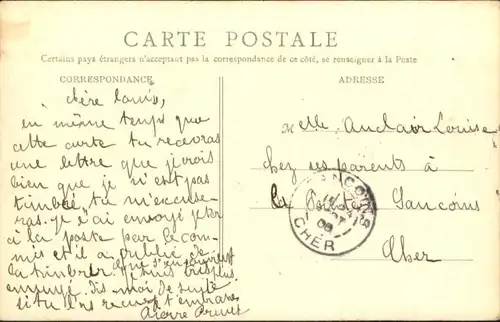 CARTE POSTALE
Certains pays étrangers n'acceptant pas la correspondance de ce côté, se renseigner à la Poste
CORRESPONDANCE
ADRESSE
chère
en même temps que
cette carte tu recevras
une lettre que je crois
bien que je n'est pas
timbré, tu m'excuse-
ras. je l'ai envoyé jeter
à la poste par le com-
mis et il a oublié de
la timbrer
envoyé. dis moi de suite
si tu l'as recue t'embrasse
Pierre
Melle Auclair Louise
chez ses parents à
la Sancoins
Cher
SANCOINS
CHER
08